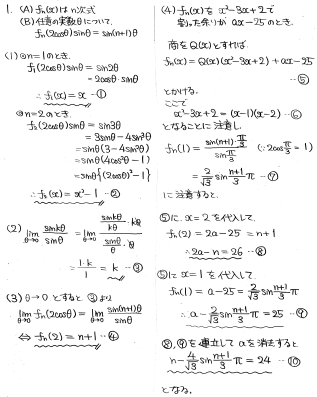 1. (A) fn(x)はn次式
(B) 任意の実数θについて.
fn(2cosθ)sinθ = sin(n+1)θ
(1) ◎n=1のとき.
f1(2cosθ)sinθ = sin2θ
= 2cosθ·sinθ
∴ f1(x) = x …①
◎n=2のとき.
f2(2cosθ)sinθ = sin3θ
= 3sinθ - 4sin³θ
= sinθ(3 - 4sin²θ)
= sinθ(4cos²θ - 1)
= sinθ{(2cosθ)² - 1}
∴ f2(x) = x² - 1 …②
(2) lim θ→0 sinkθ/sinθ = lim θ→0 (sinkθ/kθ · kθ)/(sinθ/θ · θ)
= 1·k/1 = k …③
(3) θ→0 とすると ③より
lim θ→0 fn(2cosθ) = lim θ→0 sin(n+1)θ/sinθ
⇔ fn(2) = n+1 …④
(4) fn(x)を x²-3x+2で
割った余りが ax-25のとき.
商をQ(x)とすれば.
fn(x) = Q(x)(x²-3x+2) + ax-25
…⑤
とかける.
ここで
x²-3x+2 = (x-1)(x-2) …⑥
となることに注意し.
fn(1) = sin(n+1)·π/3 / sin π/3 (∵ 2cos π/3 = 1)
= 2/√3 sin n+1/3 π …⑦
に注意すると.
⑤に x=2 を代入して.
fn(2) = 2a-25 = n+1
∴ 2a-n = 26 …⑧
⑤に x=1 を代入して.
fn(1) = a-25 = 2/√3 sin n+1/3 π
∴ a - 2/√3 sin n+1/3 π = 25 …⑨
⑧,⑨を連立して aを消去すると
n - 4/√3 sin n+1/3 π = 24 …⑩
となる.